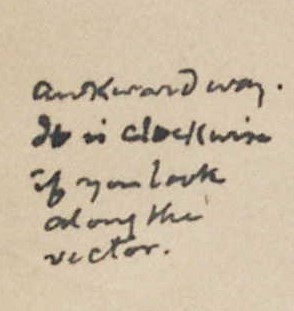 awkward way.
It is clockwise
if you look
along the
vector.